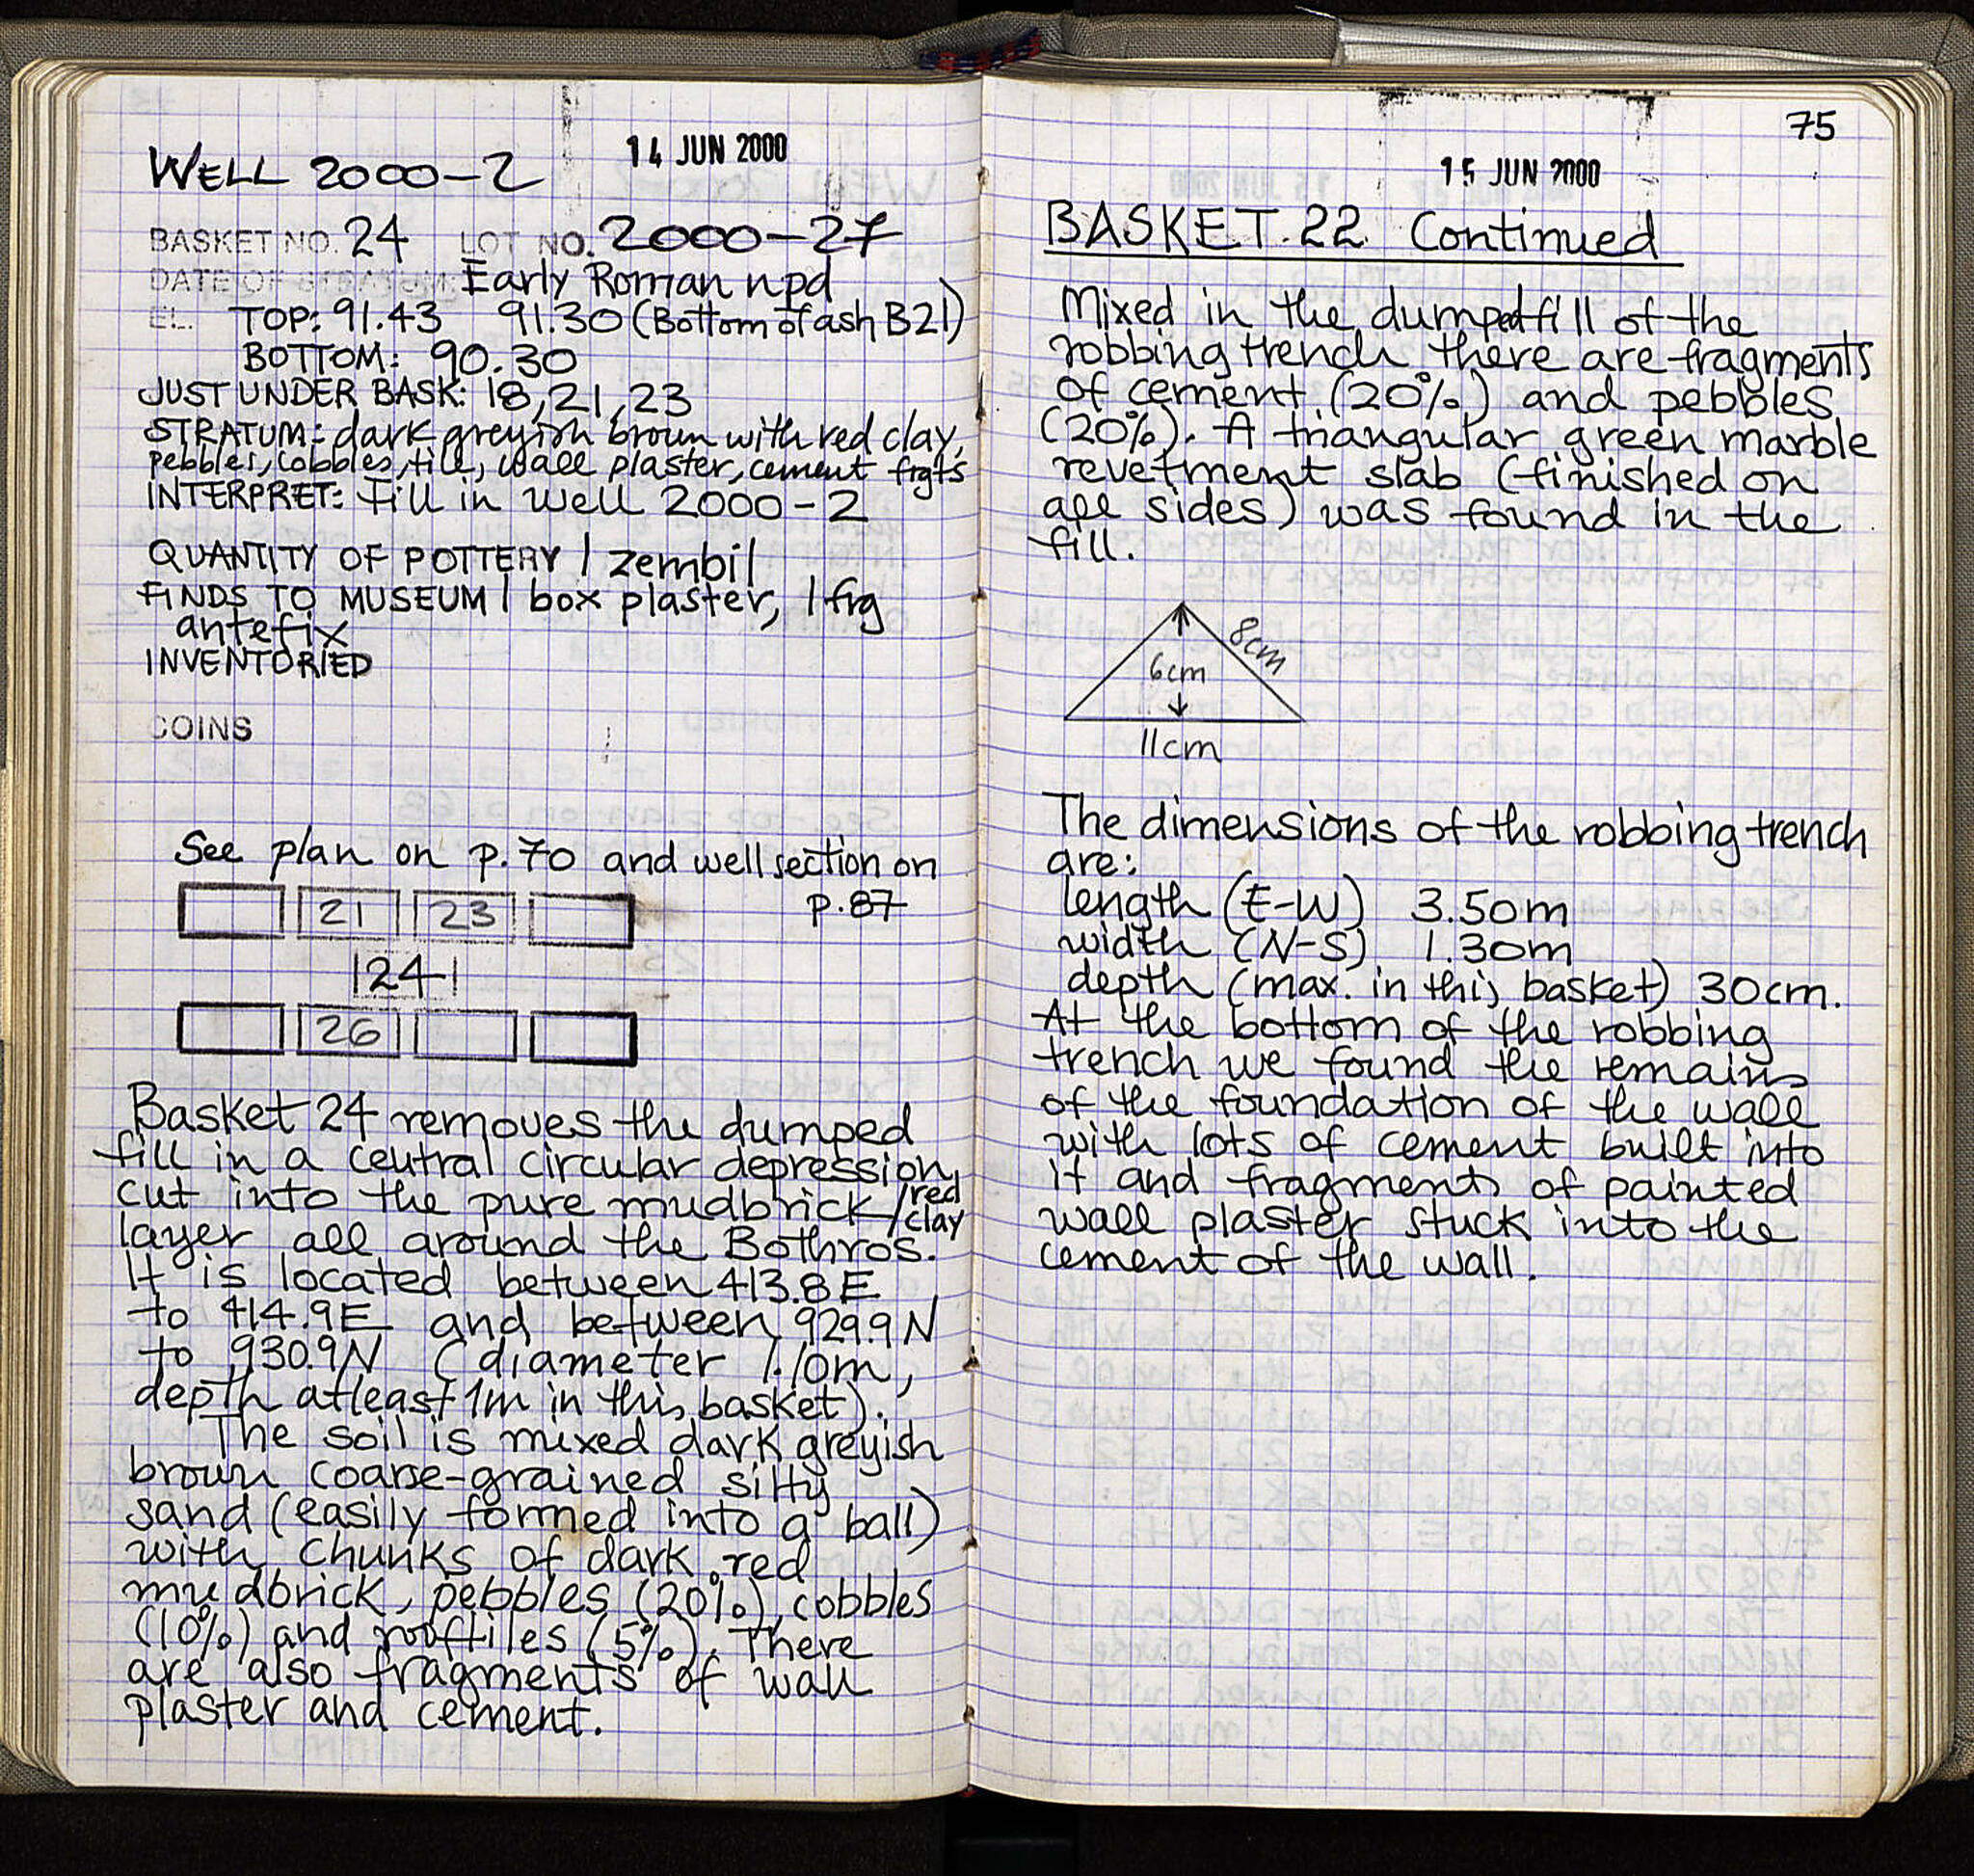 14 JUN 2000
WELL 2000-2
BASKET NO. 24 LOT NO. 2000-27
DATE OF STRATUM: Early Roman npd
EL. TOP: 91.43 91.30 (Bottom of ash B21)
BOTTOM: 90.30
JUST UNDER BASK: 18, 21, 23
STRATUM: dark greyish brown with red clay,
pebbles, cobbles, tile, wall plaster, cement frgts
INTERPRET: Fill in well 2000-2
QUANTITY OF POTTERY 1 zembil
FINDS TO MUSEUM 1 box plaster, 1 frg
antefix
INVENTORIED
COINS
See plan on p.70 and well section on
p.87
21 23
24
26
Basket 24 removes the dumped
fill in a central circular depression
cut into the pure mudbrick/red clay
layer all around the Bothros.
It is located between 413.8E
to 414.9E and between 929.9N
to 930.9N (diameter 1.10m,
depth atleast 1m in this basket).
The soil is mixed dark greyish
brown coarse-grained silty
sand (easily formed into a ball)
with chunks of dark red
mudbrick, pebbles (20%), cobbles
(10%) and rooftiles (5%). There
are also fragments of wall
plaster and cement.
75
15 JUN 2000
BASKET 22 Continued
Mixed in the dumped fill of the
robbing trench there are fragments
of cement (20%) and pebbles
(20%). A triangular green marble
revetment slab (finished on
all sides) was found in the
fill.
8cm
6cm
11cm
The dimensions of the robbing trench
are:
length (E-W) 3.50m
width (N-S) 1.30m
depth (max. in this basket) 30cm.
At the bottom of the robbing
trench we found the remains
of the foundation of the wall
with lots of cement built into
it and fragments of painted
wall plaster stuck into the
cement of the wall.